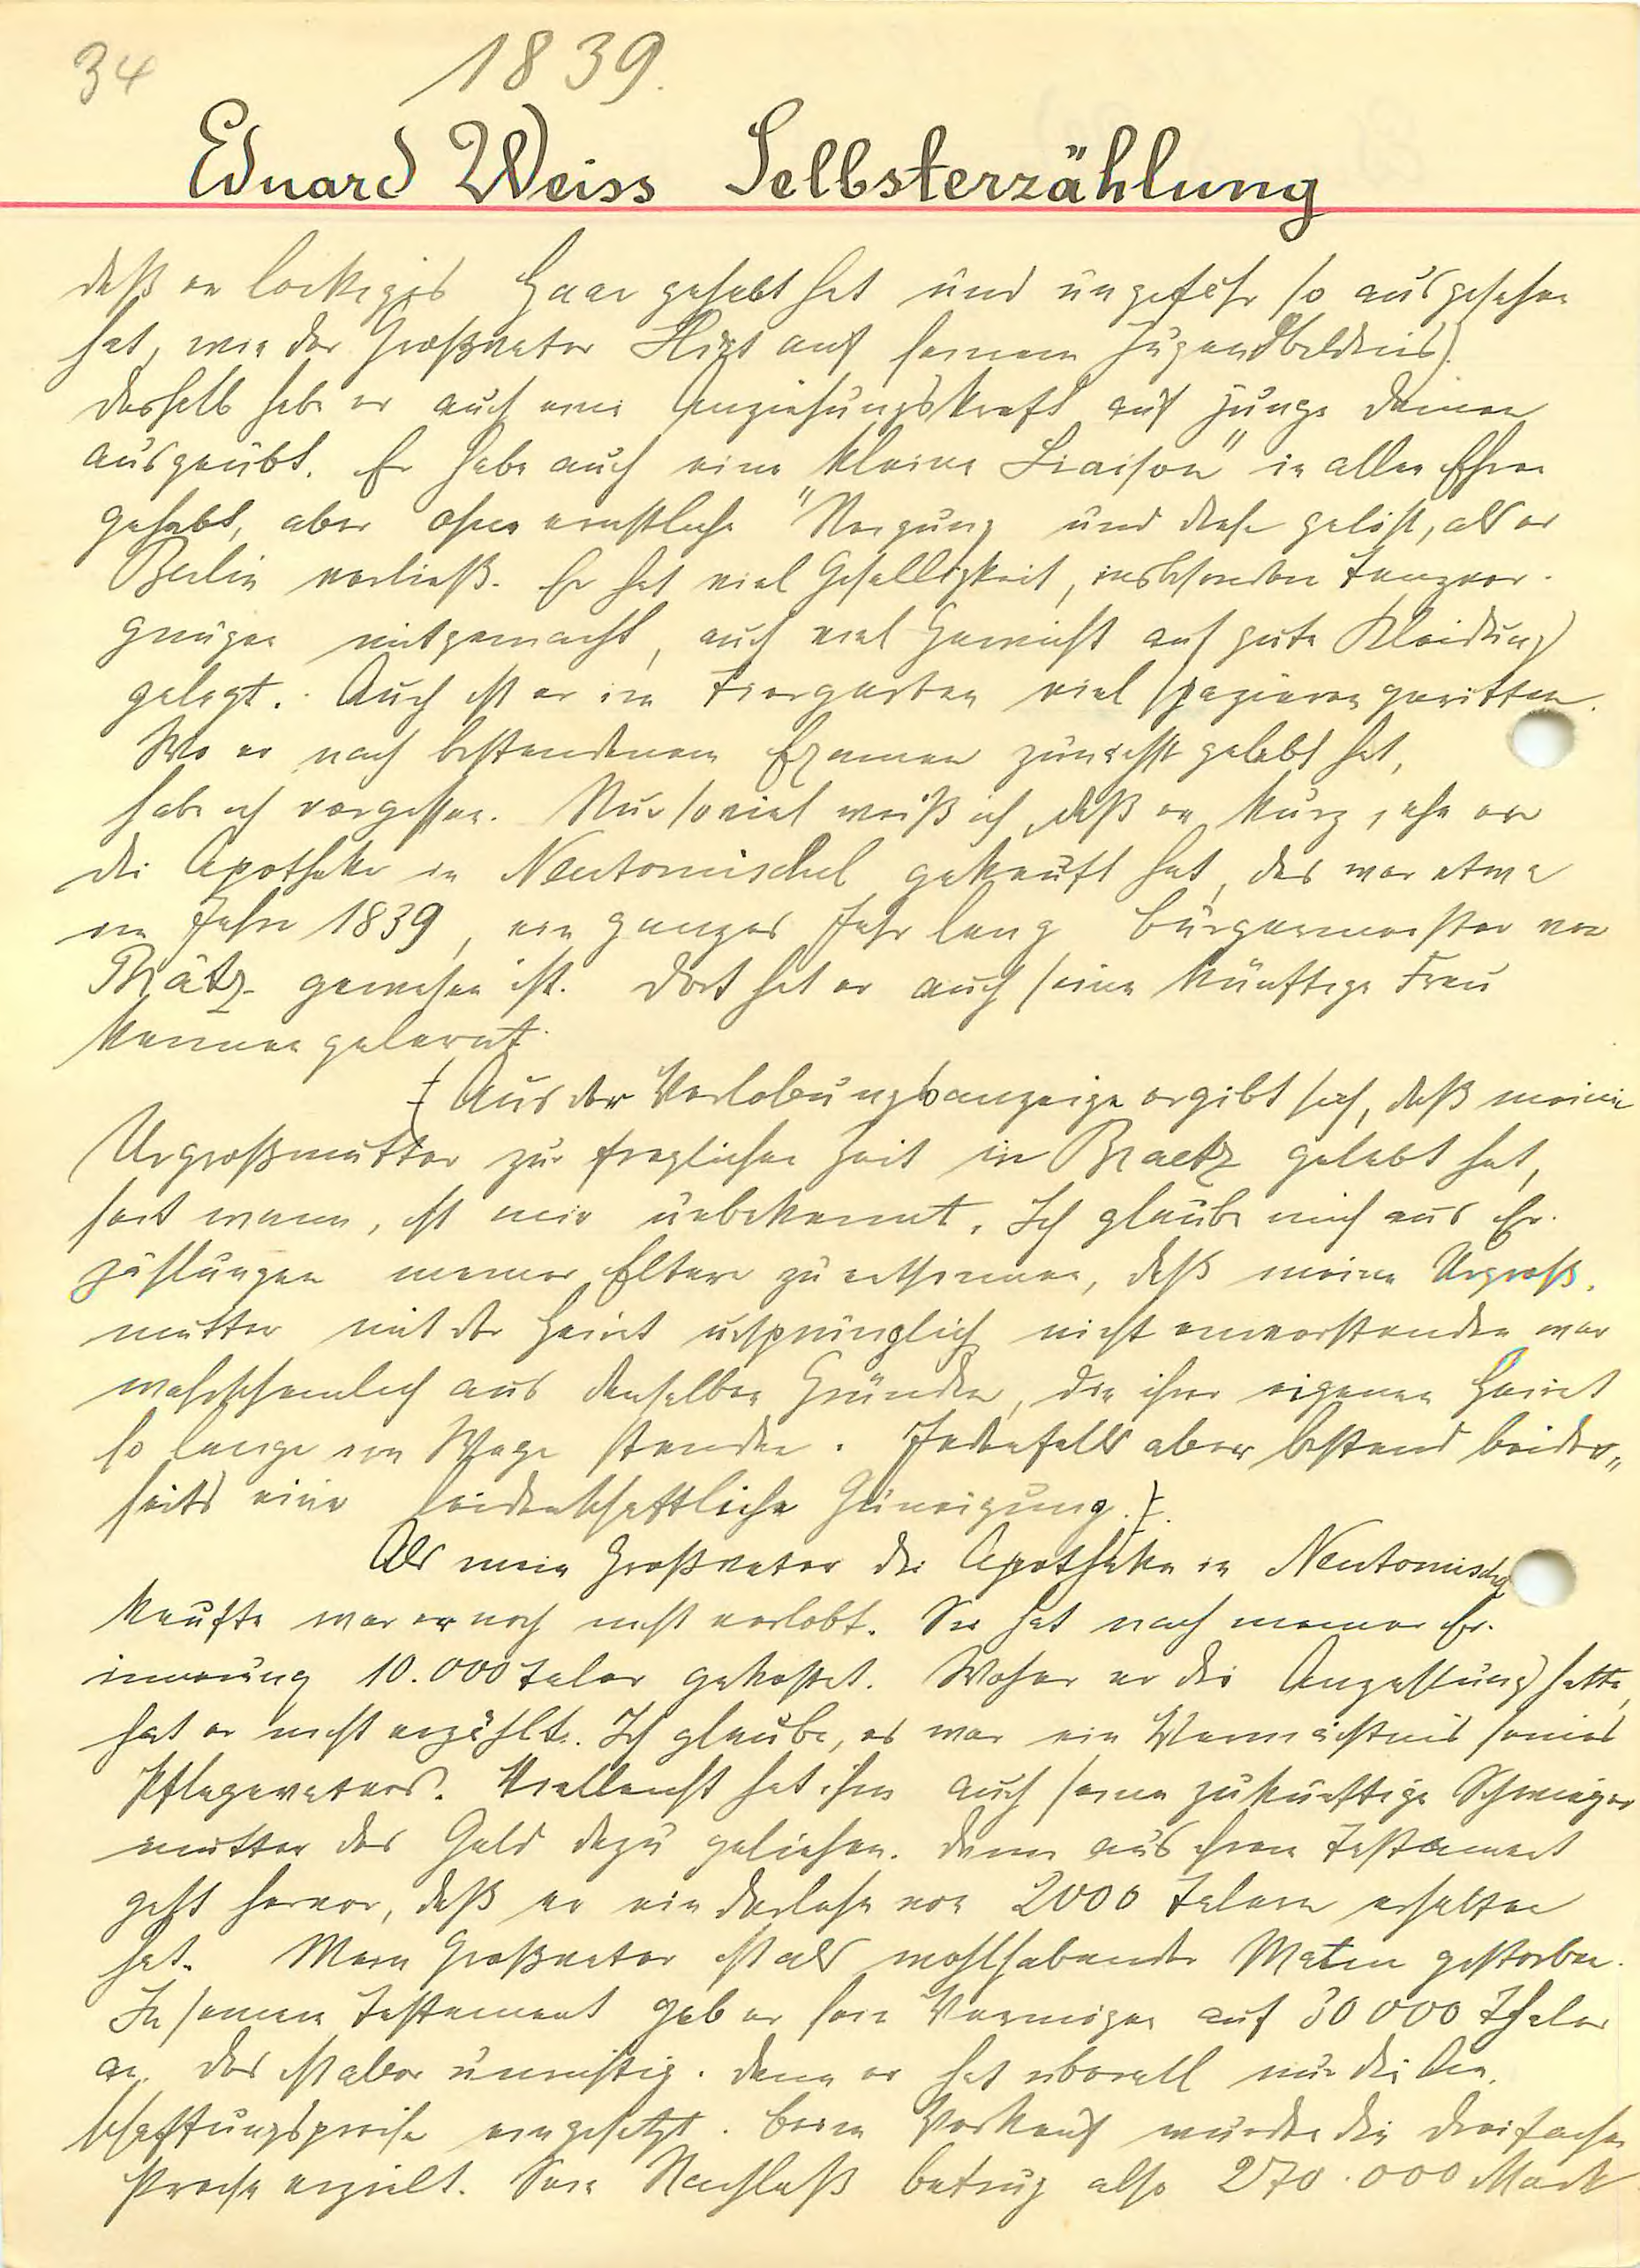 34
1839.
Eduard Weiss Selbsterzählung
daß er lockiges Haar gehabt hat und ungefähr so ausgesehen
hat, wie der Großvater auf seinem Jugendbildnis).
Deshalb habe er auch eine Anziehungskraft auf junge Damen
ausgeübt. Er habe auch eine kleine "Liaison" in allen Ehren
gehabt, aber ohne ernstliche Neigung und diese gelöst, als er
Berlin verließ. Er hat viel Geselligkeit, insbesondere Tanzver-
gnügen mitgemacht, auch viel Gewicht auf gute Kleidung
gelegt. Auch ist er im Tiergarten viel spazieren geritten.
Wo er nach bestandenem Examen zunächst gelebt hat,
habe ich vergessen. Nur soviel weiß ich, daß er kurz, ehe er
die Apotheke in Neutomischel gekauft hat, das war etwa
im Jahre 1839, ein ganzes Jahr lang Bürgermeister von
Brätz gewesen ist. Dort hat er auch seine künftige Frau
kennen gelernt.
(Aus der Verlobungsanzeige ergibt sich, daß meine
Urgroßmutter zur fraglichen Zeit in Braetz gelebt hat,
seit wann, ist mir unbekannt. Ich glaube mich aus Er-
zählungen meiner Eltern zu entsinnen, daß meine Urgroß-
mutter mit der Heirat ursprünglich nicht einverstanden war
wahrscheinlich aus denselben Gründen, die ihrer eigenen Heirat
so lange im Wege standen. Jedenfalls aber bestand beider-
seits eine leidenschaftliche Zuneigung.).
Als mein Großvater die Apotheke in Neutomischel
kaufte war er noch nicht verlobt. Sie hat nach meiner Er-
innerung 10.000 Taler gekostet. Woher er die Anzahlung hatte,
hat er nicht erzählt. Ich glaube, es war ein Vermächtnis seines
Pflegevaters. Vielleicht hat ihm auch seine zukünftige Schwieger
mutter das Geld dazu geliehen. Denn aus ihrem Testament
geht hervor, daß er ein Darlehn von 2000 Talern erhalten
hat. Mein Großvater ist als wohlhabender Mann gestorben.
In seinem Testament gab er sein Vermögen auf 30000 Thaler
an. Das ist aber unrichtig. Denn er hat überall nur die An-
schaffungspreise eingesetzt. Beim Verkauf wurden die dreifachen
Preise erzielt. Sein Nachlaß betrug also 270.000 Mark